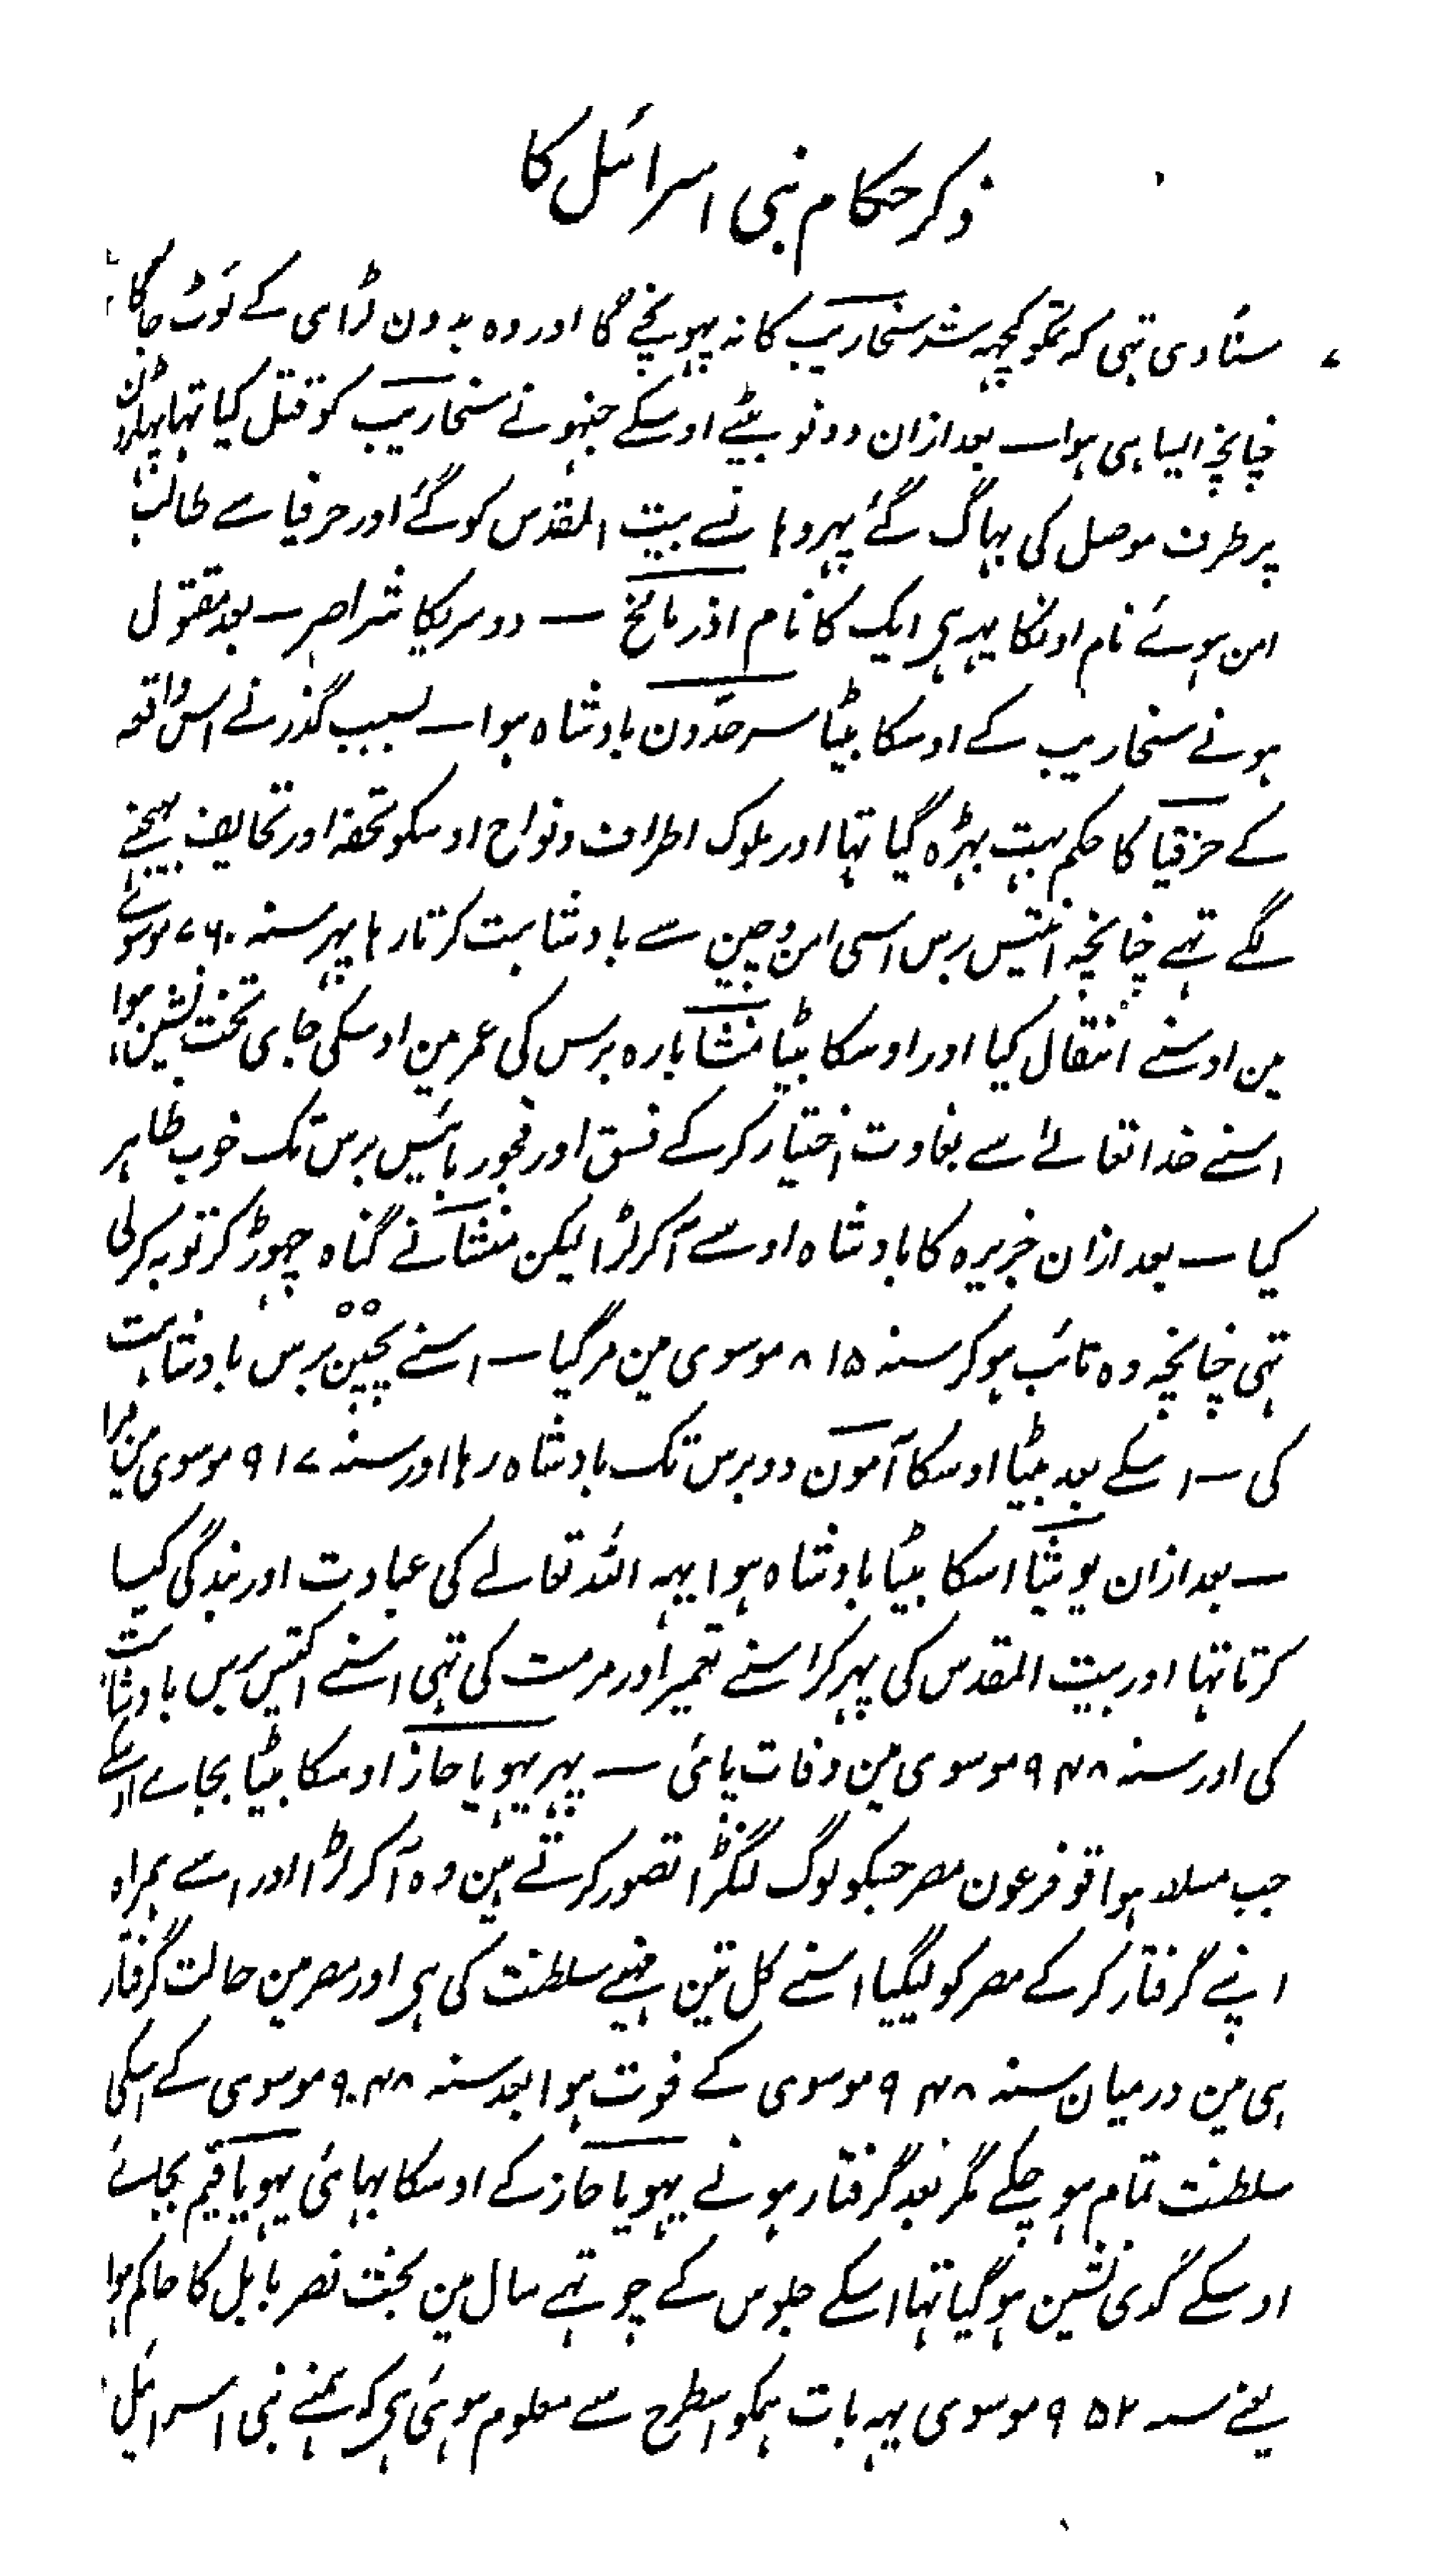 ذکر حکام بنی اسرائیل کا
سنادی تہی کہ تمکو کچہہ شر سنحاریب کا نہ پہونچے گا اور وہ بدون لڑائی کے لوٹ جائگا
چنانچہ ایسا ہی ہوا۔ بعد ازان دونو بیٹے اوسکے جنہونے سنحاریب کو قتل کیا تہا پہاڑون
پر طرف موصل کی بہاگ گئے پہر وہانسے بیت المقدس کو گئے اور حزقیا سے طالب
امن ہوئے نام اونکا یہہ ہی ایک کا نام اذرمالخ — دوسریکا شراصر — بعد مقتول
ہونے سنحاریب کے اوسکا بیٹا سرحدون بادشاہ ہوا — بسبب گذرنے اس واقعہ
کے حزقیا کا حکم بہت بہڑہ گیا تہا اور ملوک اطراف و نواح اوسکو تحفہ اور تحایف بہیجنے
لگے تہے چنانچہ انتیس برس اسی امن و چین سے بادشاہت کرتا رہا پہر سنہ ۷۶۰ موسوی
مین اوسنے انتقال کیا اور اوسکا بیٹا منشا بارہ برس کی عمر مین اوسکی جای تخت نشین ہوا
اسنے خدا تعالے سے بغاوت اختیار کرکے فسق اور فجور بائیس برس تک خوب ظاہر
کیا — بعد ازان جزیرہ کا بادشاہ اوسے آکر لڑا لیکن منشا نے گناہ چہوڑ کر توبہ کرلی
تہی چنانچہ وہ تائب ہوکر سنہ ۸۱۵ موسوی مین مرگیا — اسنے پچپن برس بادشاہت
کی — اسکے بعد بیٹا اوسکا آمون دو برس تک بادشاہ رہا اور سنہ ۹۱۷ موسوی مین مرا
— بعد ازان یوشیا اسکا بیٹا بادشاہ ہوا یہہ اللہ تعالے کی عبادت اور بندگی کیا
کرتا تہا اور بیت المقدس کی پہر کر اسنے تعمیر اور مرمت کی تہی اسنے اکتیس برس بادشاہت
کی اور سنہ ۹۴۸ موسوی مین وفات پائی — پہر یہویاحاز اوسکا بیٹا بجاے اوسکے
جب مسلط ہوا تو فرعون مصر جسکو لوگ لنگڑا تصور کرتے ہین وہ آکر لڑا اور اسے ہمراہ
اپنے گرفتار کرکے مصر کو لیگیا اسنے کل تین مہینے سلطنت کی ہی اور مصر مین حالت گرفتار
ہی مین درمیان سنہ ۹۴۸ موسوی کے فوت ہوا بعد سنہ ۹۴۸ موسوی کے اسکی
سلطنت تمام ہوچکے مگر بعد گرفتار ہونے یہویاحاز کے اوسکا بہائی یہویاقیم بجائے
اوسکے گدی نشین ہوگیا تہا اسکے جلوس کے چوتہے سال مین بخت نصر بابل کا حاکم ہوا
یعنے سنہ ۹۵۲ موسوی یہہ بات ہمکو اسطرح سے معلوم ہوئی ہی کہ ہمنے بنی اسرائیل